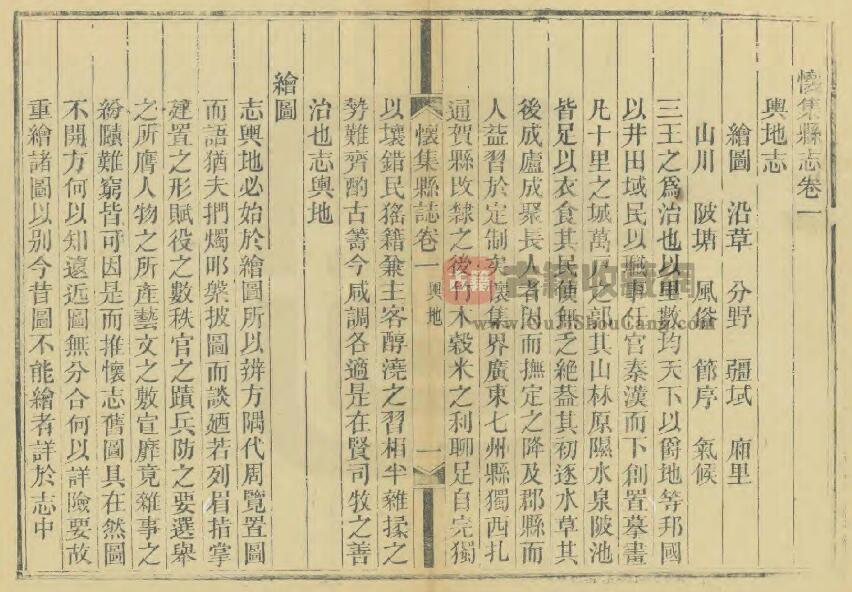 懷集縣志卷一
輿地志
繪圖 沿革 分野 疆域 廂里
山川 陂塘 風俗 節序 氣候
三王之為治也以里數均天下以爵地等邦國
以井田域民以職事任官秦漢而下創置摹畫
凡十里之城萬戶之郭其山林原隰水泉陂池
皆足以衣食其民使無乏絶葢其初逐水草其
後成廬成聚長人者因而撫定之降及郡縣而
人葢習於定制矣懷集界廣東七州縣獨西扎
通賀縣改隸之後竹木穀米之利聊足自完獨
懷集縣誌卷一 輿地 一
以壤錯民猺籍兼主客醇澆之習相半雜揉之
勢難齊酌古籌今咸調各適是在賢司牧之善
治也志輿地
繪圖
志輿地必始於繪圖所以辨方隅代周覽置圖
而語猶夫捫燭叩槃披圖而談廼若列眉指掌
建置之形賦役之數秩官之蹟兵防之要選舉
之所膺人物之所產藝文之敷宣靡竟雜事之
紛賾難窮皆可因是而推懷志舊圖具在然圖
不開方何以知遠近圖無分合何以詳險要故
重繪諸圖以別今昔圖不能繪者詳於志中
古籍收藏网
www.GuJiShouCang.com
古籍